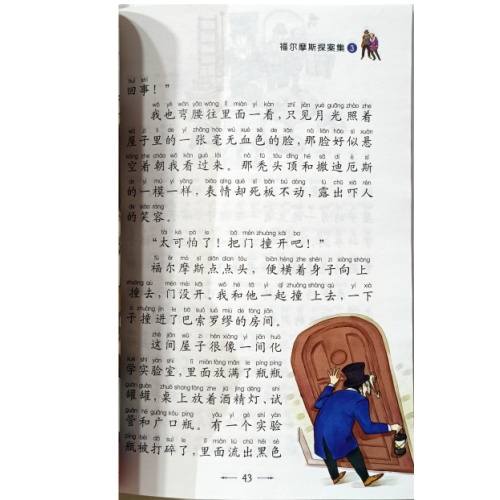 福尔摩斯探案集 3
回事！”
我也弯腰往里面一看，只见月光照着
屋子里的一张毫无血色的脸，那脸好似悬
空着朝我看过来。那秃头顶和撒迪厄斯
的一模一样，表情却死板不动，露出吓人
的笑容。
“太可怕了！把门撞开吧！”
福尔摩斯点点头，便横着身子向上
撞去，门没开。我和他一起撞上去，一下
子撞进了巴索罗缪的房间。
这间屋子很像一间化
学实验室，里面放满了瓶瓶
罐罐，桌上放着酒精灯、试
管和广口瓶。有一个实验
瓶被打碎了，里面流出黑色
43